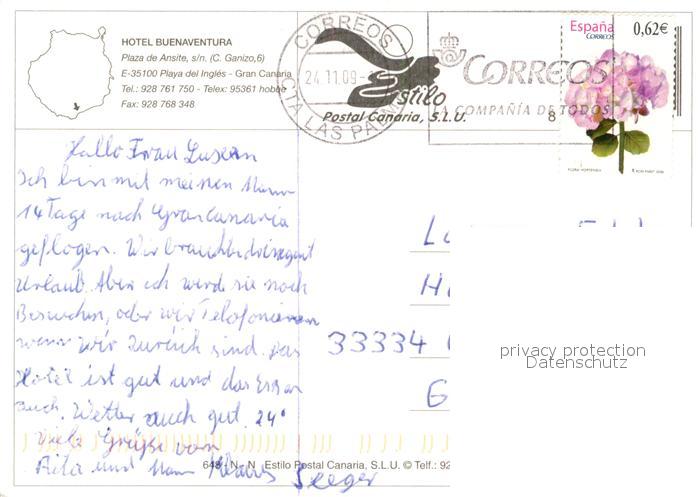 HOTEL BUENAVENTURA
Plaza de Ansite, s/n. (C. Ganizo,6)
E-35100 Playa del Inglés - Gran Canaria
Tel.: 928 761 750 - Telex: 95361 hobbe
Fax: 928 768 348
CORREOS
24 11 09
CTA LAS PALMAS
Estilo
Postal Canaria, S.L.U.
CORREOS
LA COMPAÑÍA DE TODOS
8
España
CORREOS
0,62€
FLORA. HORTENSIA
Hallo Frau Lusern
Ich bin mit meinen Mann
14 Tage nach Grancanaria
geflogen. Wir brauchten dringent
Urlaub. Aber ich werde sie noch
Besuchen, oder wir Telefonieren
wenn wir zurück sind. Das
Hotel ist gut und das Essen
auch. Wetter auch gut. 24°
Viele Grüße von
Rita und Mann Klaus Seeger
33334
G
648 - N - N Estilo Postal Canaria, S.L.U. © Telf.: 92
privacy protection
Datenschutz